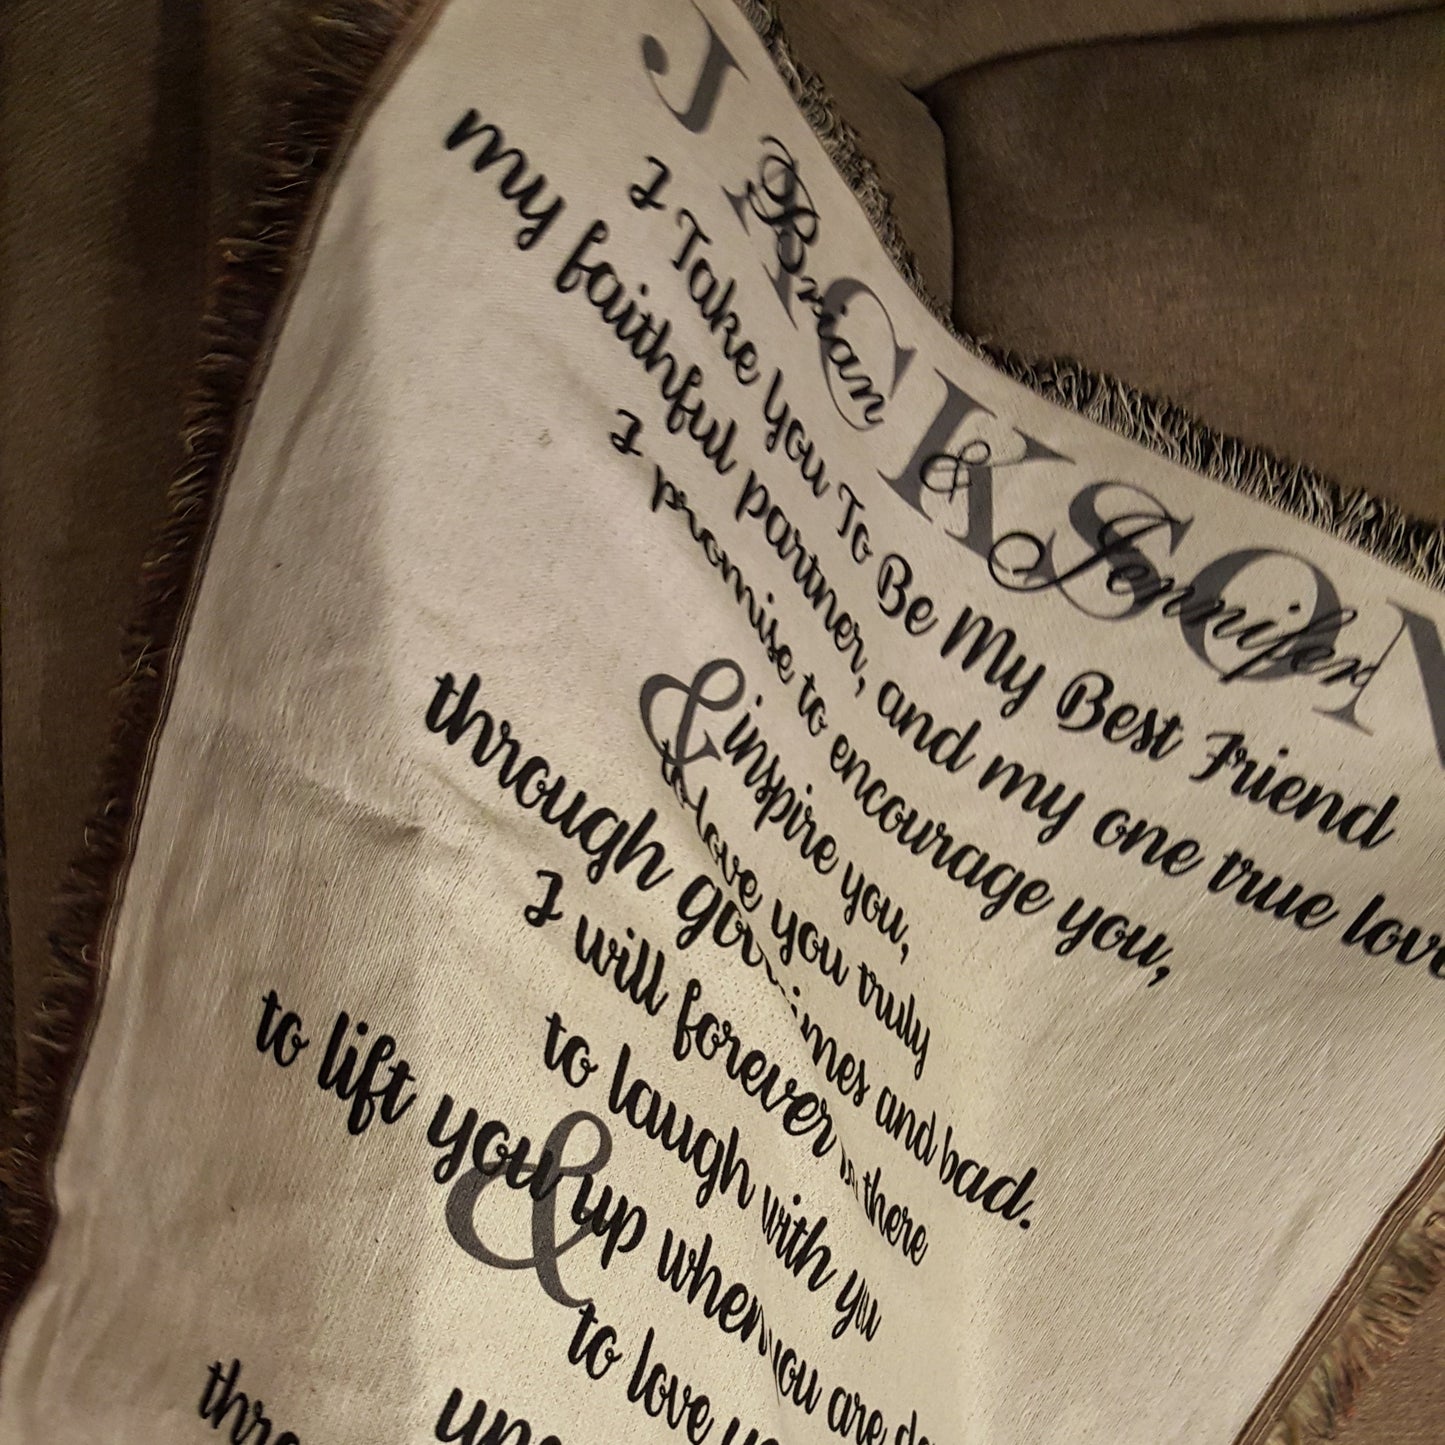 JACKSON
Brian & Jennifer
I Take You To Be My Best Friend
my faithful partner, and my one true love
I promise to encourage you,
& inspire you,
to love you truly
through good times and bad.
I will forever be there
to laugh with you
to lift you up when you are
& to love